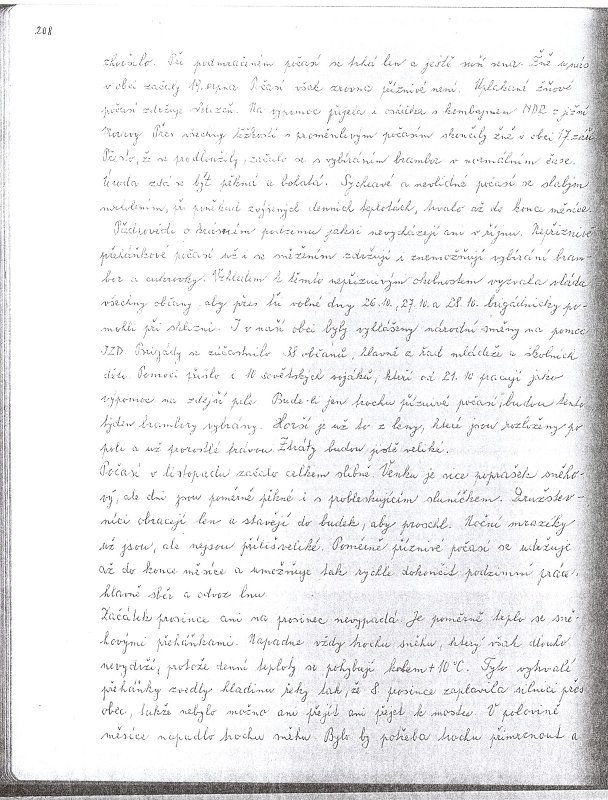 208
zhoršilo. Při podmračeném počasí se trhá len a ještě suší seno. Žně
v obci začaly 19. srpna. Počasí však zrovna příznivé není. Uplakané žňové
počasí zdržuje sklizeň. Na výpomoc přijela i osádka s kombajnem NDR z jižní
Moravy. Přes všechny těžkosti s proměnlivým počasím skončily žně v obci 17. září.
Přesto, že se prodloužily, začalo se s vybíráním brambor v normálním čase.
Úroda zdá se být pěkná a bohatá. Sychravé a nevlídné počasí se slabým
mrholením, při poněkud zvýšených denních teplotách, trvalo až do konce měsíce.
Předpovědi o krásném podzimu jaksi nevycházejí ani v říjnu. Nepříznivé
přeháňkové počasí už i se sněžením zdržují i znemožňují vybírání bram-
bor a cukrovky. Vzhledem k těmto nepříznivým okolnostem vyzvala vláda
všechny občany aby přes tři volné dny 26.10., 27.10. a 28.10. brigádnicky po-
mohli při sklizni. I v naší obci byly vyhlášeny národní směny na pomoc
JZD. Brigády se zúčastnilo 38 občanů, hlavně z řad mládeže a školních
dětí. Pomoci přišlo i 10 sovětských vojáků, kteří od 21.10 pracují jako
výpomoc na zdejší pile. Bude-li jen trochu příznivé počasí, budou tento
týden brambory vybrány. Horší je už to z leny, které jsou rozloženy po
pole a už prorostlé trávou. Ztráty budou jistě veliké.
Počasí v listopadu začalo celkem slibně. Venku je sice poprašek sněho-
vý, ale dni jsou poměrně pěkné i s probleskujícím sluníčkem. Družstev-
níci obracejí len a stavějí do budek, aby proschl. Noční mrazíky
už jsou, ale nejsou příliš veliké. Poměrně příznivé počasí se udržuje
až do konce měsíce a umožňuje tak rychle dokončit podzimní práce,
hlavně sběr a odvoz lnu.
Začátek prosince ani na prosinec nevypadá. Je poměrně teplo se sně-
hovými přeháňkami. Napadne vždy trochu sněhu, který však dlouho
nevydrží, protože denní teploty se pohybují kolem +10°C. Tyto vytrvalé
přeháňky zvedly hladinu řeky tak, že 8 prosince zaplavila silnici přes
obec, takže nebylo možno ani přejít ani přejet k mostu. V polovině
měsíce napadlo trochu sněhu. Bylo by potřeba trochu přimrznout a